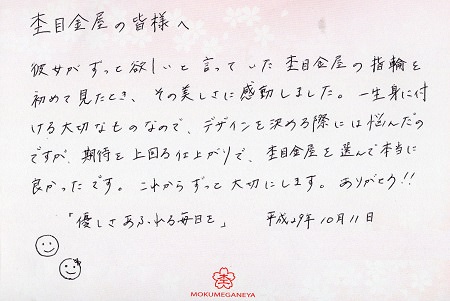 杢目金屋の皆様へ
彼女がずっと欲しいと言っていた杢目金屋の指輪を
初めて見たとき、その美しさに感動しました。一生身に付
ける大切なものなので、デザインを決める際には悩んだの
ですが、期待を上回る仕上がりで、杢目金屋を選んで本当に
良かったです。これからずっと大切にします。ありがとう!!
「優しさあふれる毎日を」 平成29年10月11日
MOKUMEGANEYA